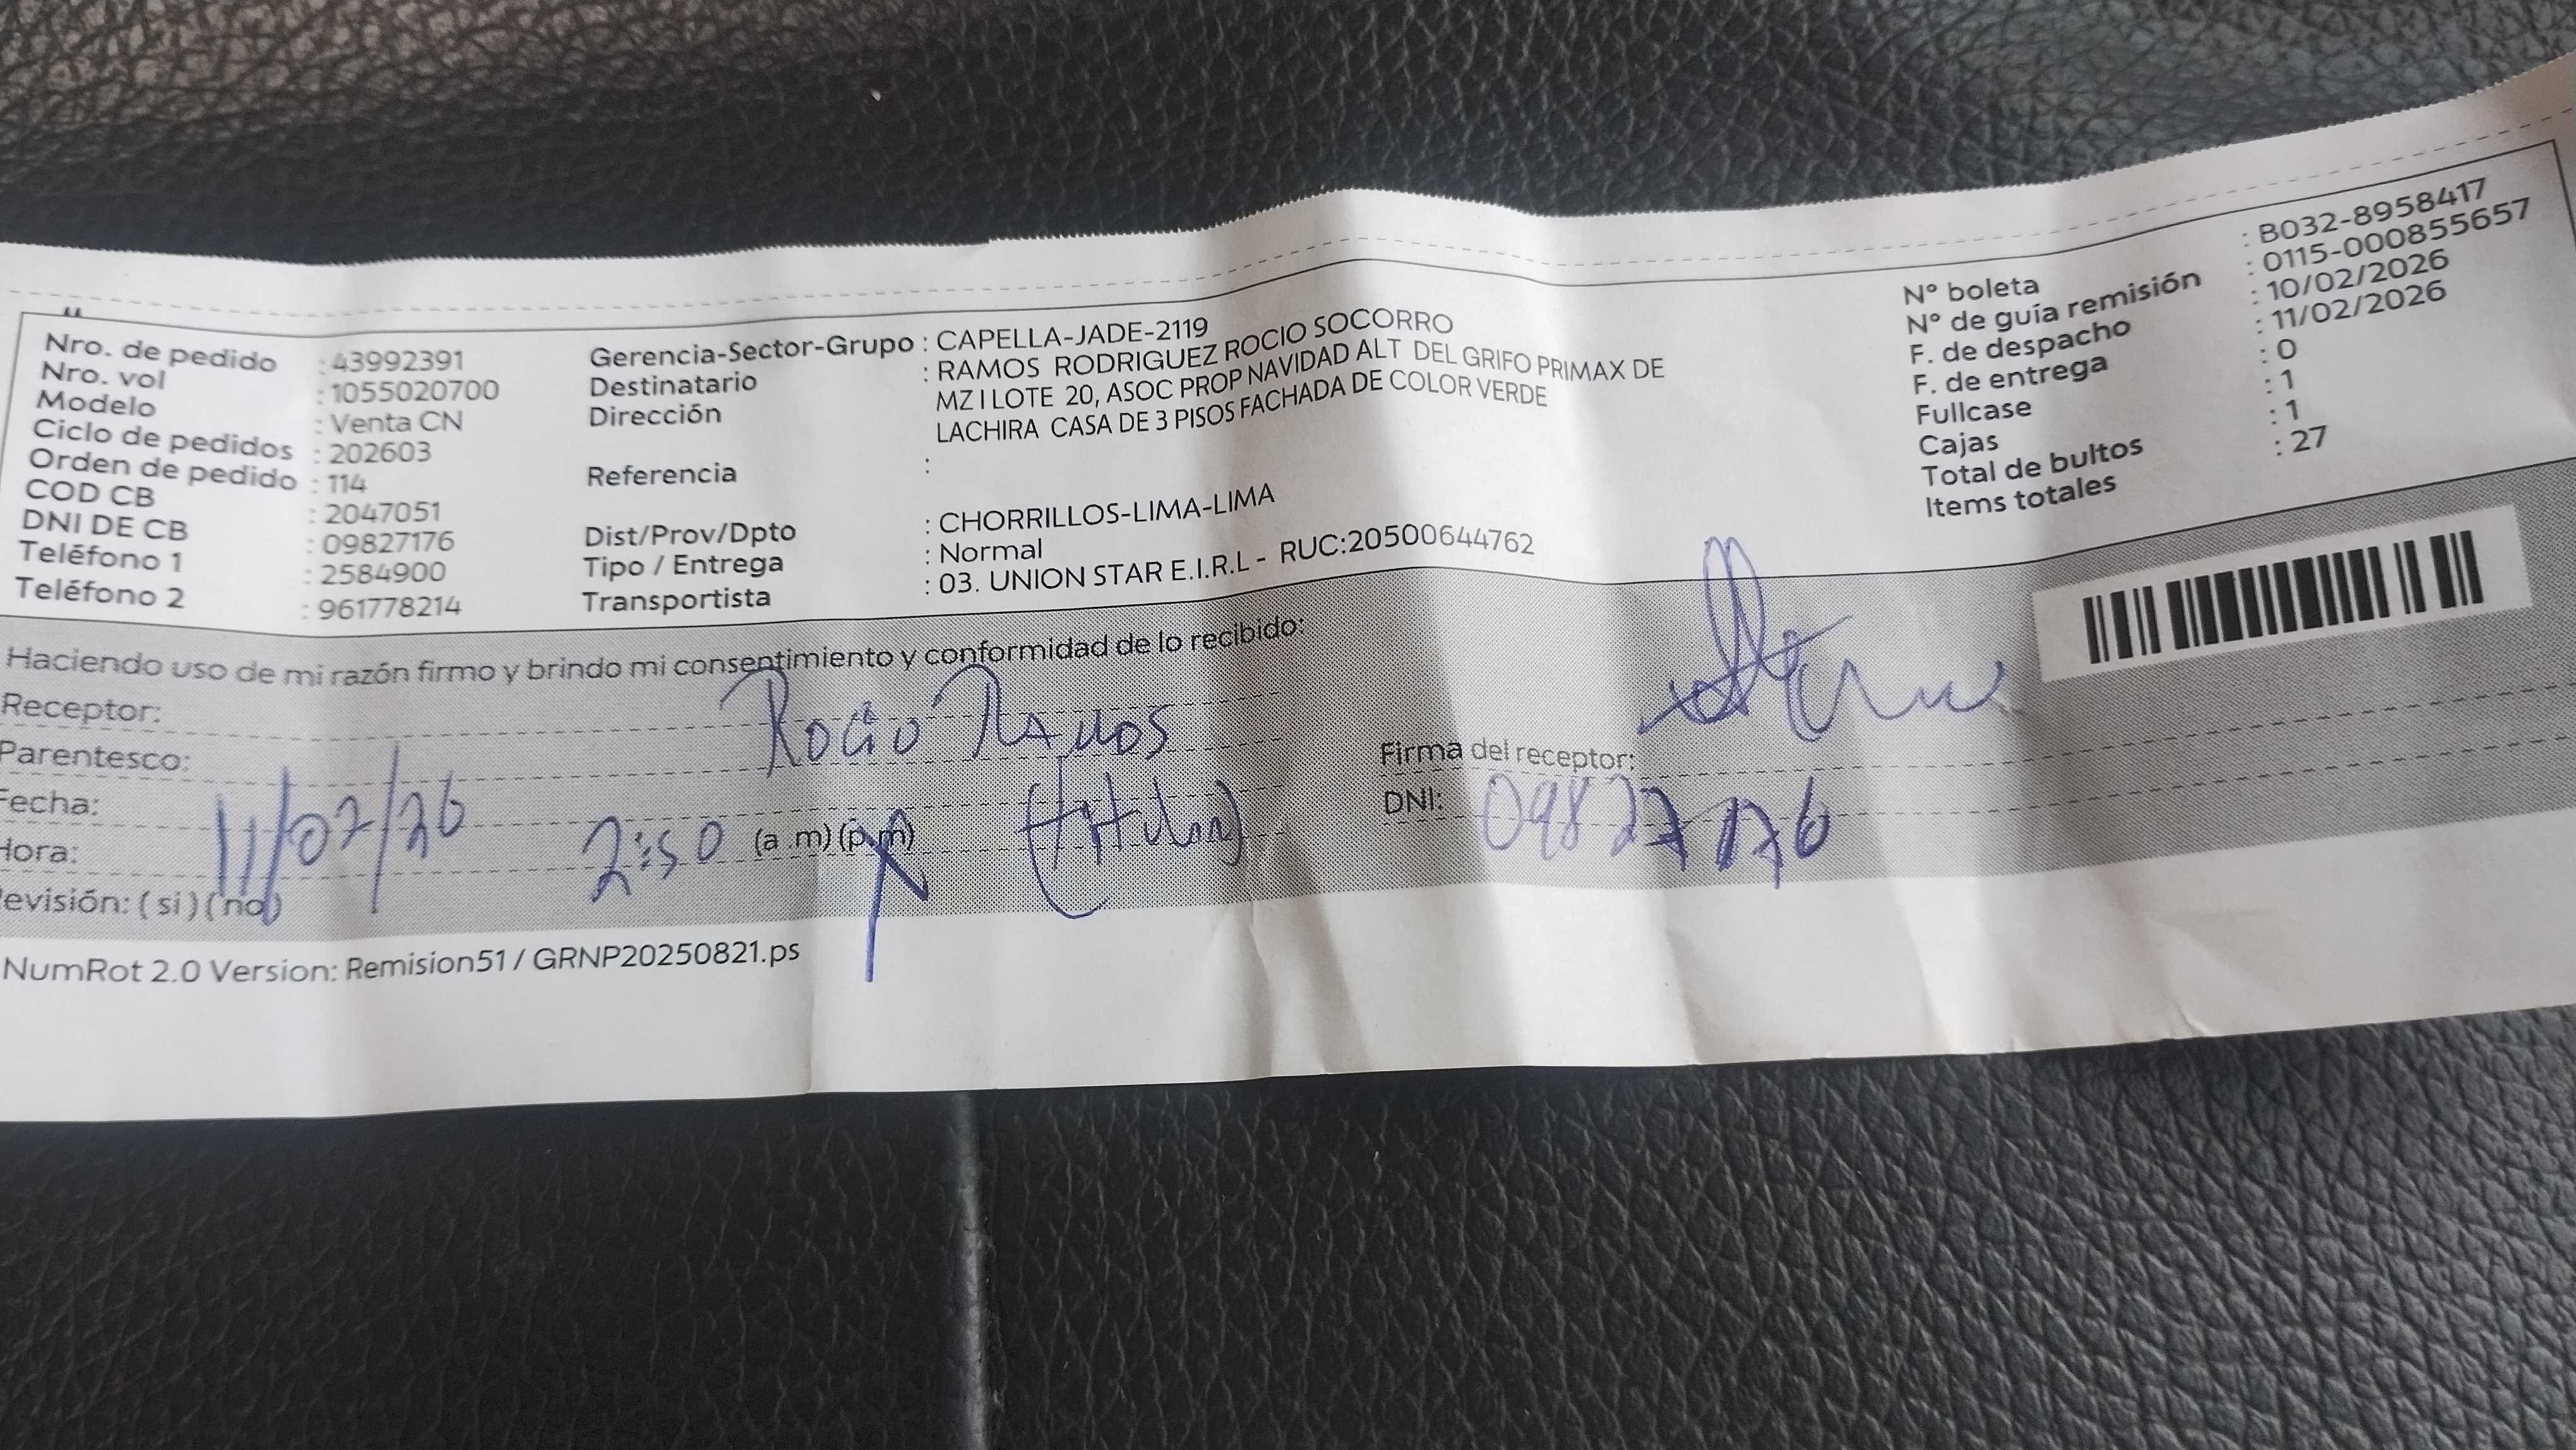 Nro. de pedido : 43992391
Nro. vol : 1055020700
Modelo : Venta CN
Ciclo de pedidos : 202603
Orden de pedido : 114
COD CB : 2047051
DNI DE CB : 09827176
Teléfono 1 : 2584900
Teléfono 2 : 961778214
Gerencia-Sector-Grupo : CAPELLA-JADE-2119
Destinatario : RAMOS RODRIGUEZ ROCIO SOCORRO
Dirección MZ I LOTE 20, ASOC PROP NAVIDAD ALT DEL GRIFO PRIMAX DE
LACHIRA CASA DE 3 PISOS FACHADA DE COLOR VERDE
Referencia :
Dist/Prov/Dpto : CHORRILLOS-LIMA-LIMA
Tipo / Entrega : Normal
Transportista : 03. UNION STAR E.I.R.L - RUC:20500644762
N° boleta : B032-8958417
N° de guía remisión : 0115-000855657
F. de despacho : 10/02/2026
F. de entrega : 11/02/2026
Fullcase : 0
Cajas : 1
Total de bultos : 1
Items totales : 27
Haciendo uso de mi razón firmo y brindo mi consentimiento y conformidad de lo recibido:
Receptor: Rocio Ramos
Parentesco: (titular)
Fecha: 11/02/26
Hora: 2:50 (a .m) (p.m)
Revisión: ( si ) ( no )
Firma del receptor:
DNI: 09827176
NumRot 2.0 Version: Remision51 / GRNP20250821.ps